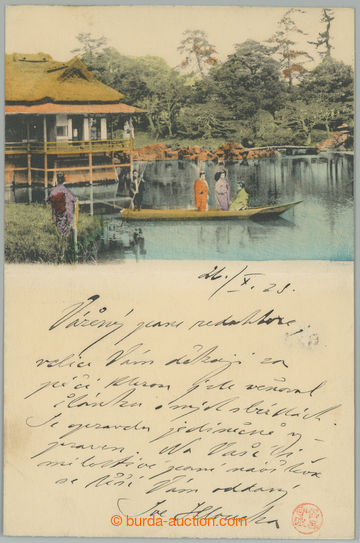 26./X. 23.
Vážený pane redaktore,
velice Vám děkuji za
péči kterou jste věnoval
článku o mých sbírkách.
Je opravdu jedinečně
praven. Na Vaši
milostivé paní
se těší Vám oddaný
Joe Hloucha
© burda-auction.com